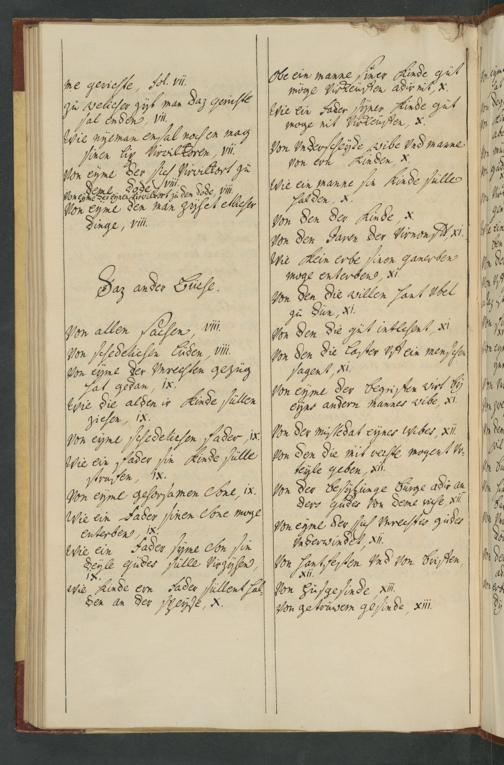 me gerichte, fol. vii.
zu welicher zyt man daz gerichte
sal enden, vii.
Wie nyeman ensal noch en mag
sinen lip virwilkoren, vii.
Von eyme der sich virwilkort zu
deme dode, viii.
Von eyme den man zyhet
dinge, viii.
Daz ander Buch.
Von allen sachen, viii.
Von schedelichen luden, viii.
Von eyme der unrechten gezug
hat gedan, ix.
Wie die alden ir kinde sullen
ziehen, ix.
Von eyme schedelichen fader, ix.
Wie ein fader sin kinde sulle
straffen, ix.
Von eyme gehorsamen sone, ix.
Wie ein fader sinen sone moge
enterben, ix.
Wie ein fader syme son sin
deyle gudes sulle
ix.
Wie kinde ern fader sullent hal
den an der spyse, x.
Obe ein manne siner kinde gut
moge virkeuffen adir nit, x.
Wie ein fader syner kinde gut
moge nit virkeuffen, x.
Von underscheyde wibe und manne
von ern kinden, x.
Wie ein manne sin kinde sulle
halden, x.
Von den der kinde, x.
Von den Jaren der virnonfft, xi.
Wie kein erbe sinen ganerben
moge enterben, xi.
Von den die willen hant ubel
zu dun, xi.
Von den die gut intlehent, xi.
Von den die laster uff ein menschen
sagent, xi.
Von eyme der begriffen wirt by
eyns andern mannes wibe, xi.
Von der missedat eynes wibes, xii.
Von den die mit rechte mogent ur
teyle geben, xii.
Von der
ders gudes von deme riche, xii.
Von eyme der sich unrechtes gudes
underwindet, xii.
Von hantfesten und von briffen
xii.
Von husgesinde, xiii.
Von getruwem gesinde, xiii.